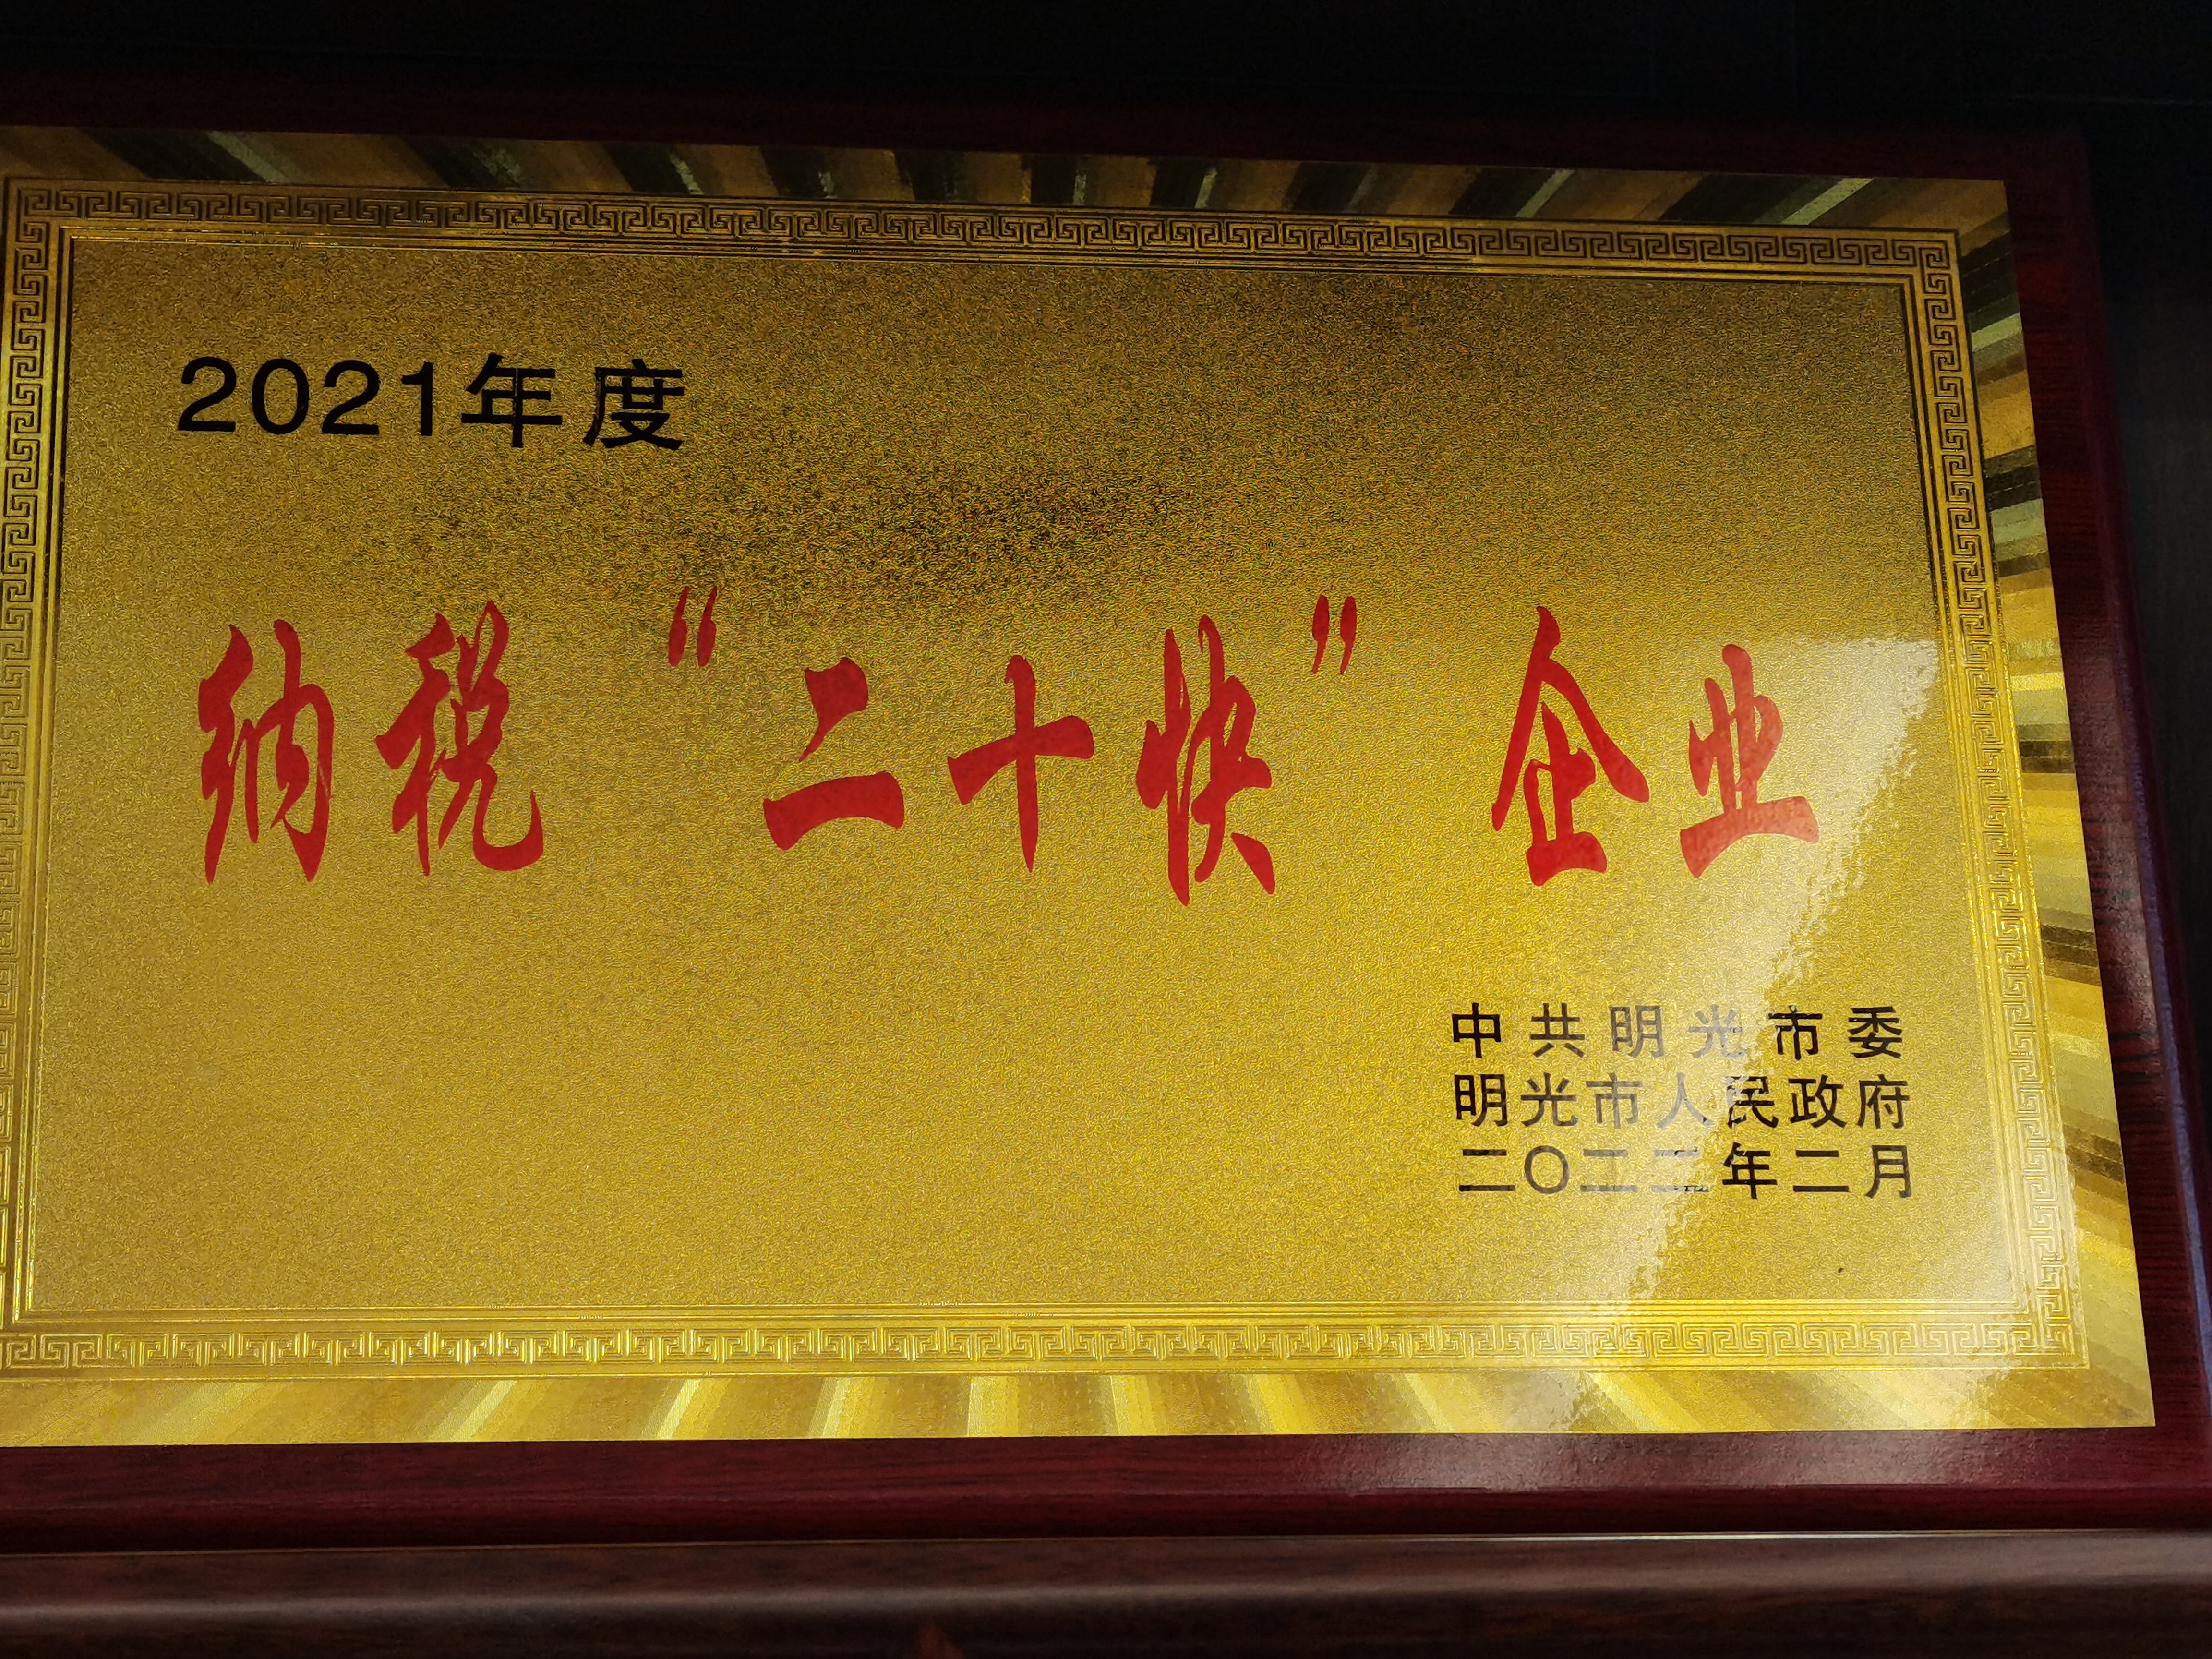 2021年度
纳税“二十快”企业
中共明光市委
明光市人民政府
二〇二二年二月